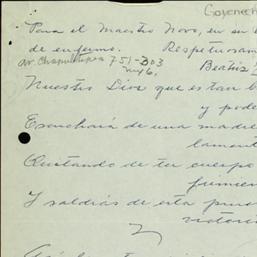 Para el Maestro Novo, en su
de enfermo. Respetuosam
Av. Chapultepec 751-303
Beatriz
Nuestro Dios que es tan b
y pode
Escuchará de una madre
lament
Quitando de tu cuerpo
Y saldrás de esta prue
victori